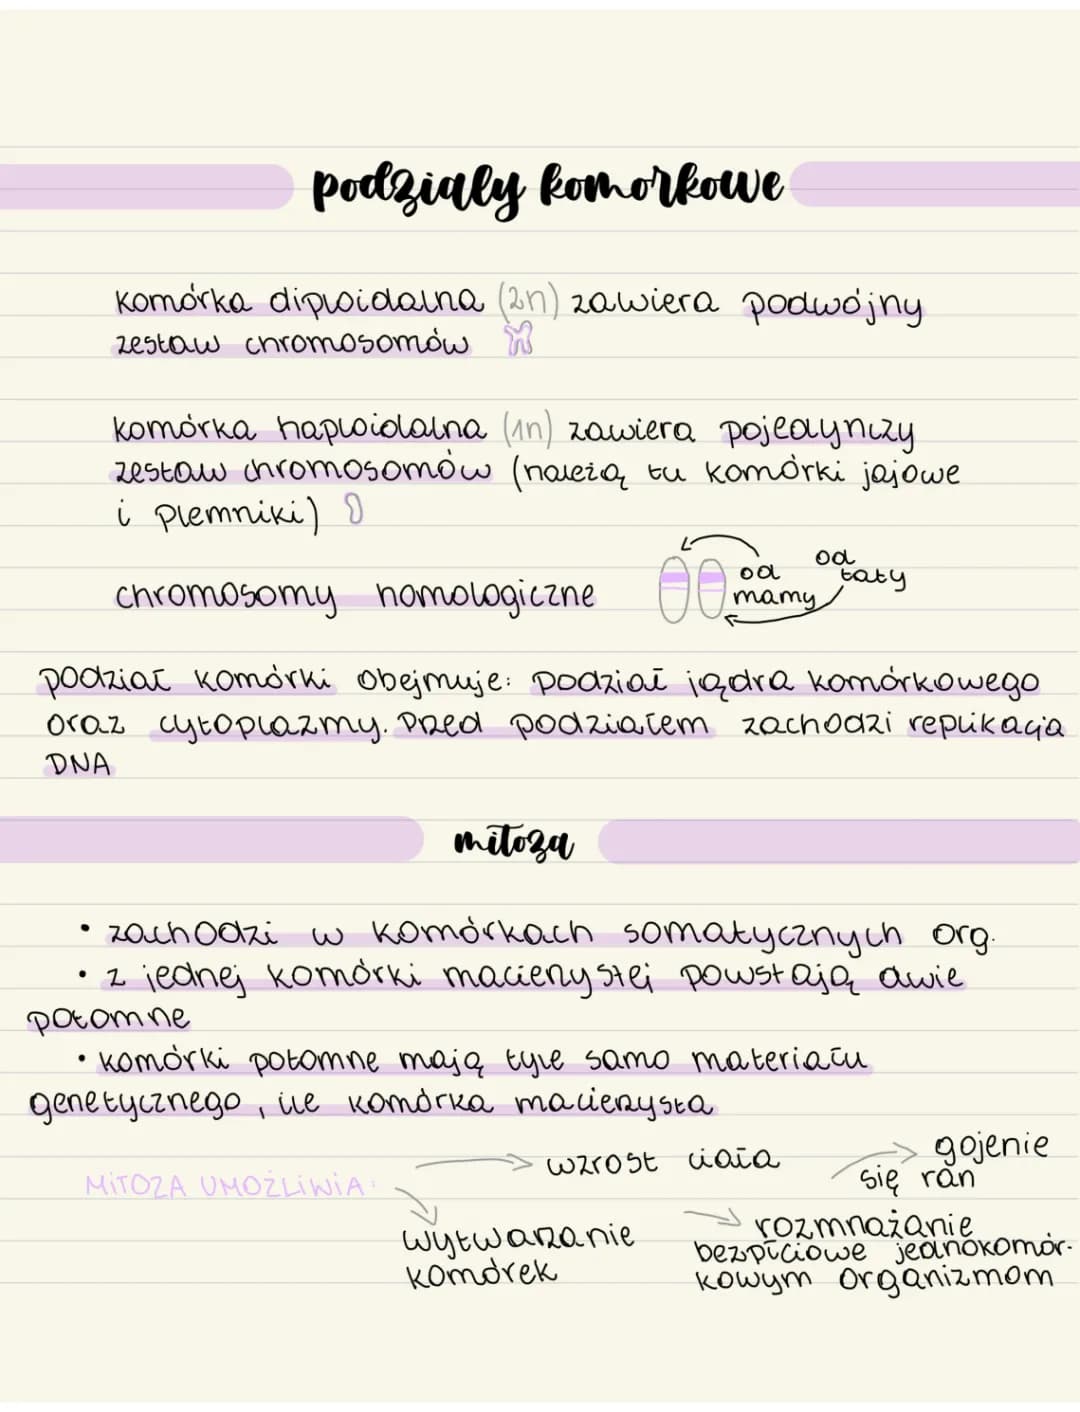 podziały komorkowe
komórka diploidalna (2n) zawiera podwójny
zestaw chromosomów
komórka haploidalna (1n) zawiera pojedynczy
zestaw chromosomów (należą tu komórki jajowe
i plemniki)
chromosomy homologiczne
od mamy
od taty
podział komórki obejmuje: podział jądra komórkowego
oraz cytoplazmy. Przed podziałem zachodzi replikacja
DNA
mitoza
• zachodzi w komórkach somatycznych org.
• z jednej komórki macierzystej powstają dwie
potomne
• komórki potomne mają tyle samo materiału
genetycznego, ile komórka macierzysta
MITOZA UMOŻLIWIA:
wzrost ciała
gojenie
się ran
wytwarzanie
komórek
rozmnażanie
bezpłciowe jednokomór-
kowym organizmom